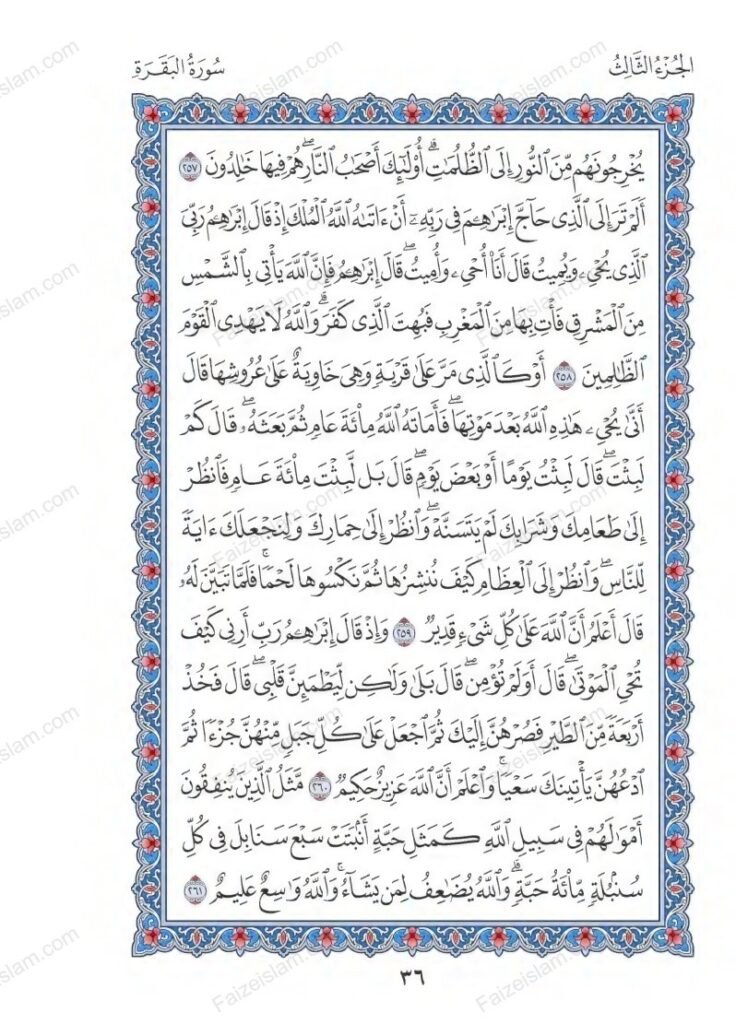 الجُزْءُ الثَّالِثُ
سُورَةُ البَقَرَةِ
يُخْرِجُونَهُم مِّنَ ٱلنُّورِ إِلَى ٱلظُّلُمَٰتِۗ أُوْلَٰٓئِكَ أَصْحَٰبُ ٱلنَّارِۖ هُمْ فِيهَا خَٰلِدُونَ ٢٥٧
أَلَمْ تَرَ إِلَى ٱلَّذِى حَآجَّ إِبْرَٰهِـۧمَ فِى رَبِّهِۦٓ أَنْ ءَاتَىٰهُ ٱللَّهُ ٱلْمُلْكَ إِذْ قَالَ إِبْرَٰهِـۧمُ رَبِّىَ
ٱلَّذِى يُحْىِۦ وَيُمِيتُ قَالَ أَنَا۠ أُحْىِۦ وَأُمِيتُۖ قَالَ إِبْرَٰهِـۧمُ فَإِنَّ ٱللَّهَ يَأْتِى بِٱلشَّمْسِ
مِنَ ٱلْمَشْرِقِ فَأْتِ بِهَا مِنَ ٱلْمَغْرِبِ فَبُهِتَ ٱلَّذِى كَفَرَۗ وَٱللَّهُ لَا يَهْدِى ٱلْقَوْمَ
ٱلظَّٰلِمِينَ ٢٥٨ أَوْ كَٱلَّذِى مَرَّ عَلَىٰ قَرْيَةٍ وَهِىَ خَاوِيَةٌ عَلَىٰ عُرُوشِهَا قَالَ
أَنَّىٰ يُحْىِۦ هَٰذِهِ ٱللَّهُ بَعْدَ مَوْتِهَاۖ فَأَمَاتَهُ ٱللَّهُ مِا۟ئَةَ عَامٍ ثُمَّ بَعَثَهُۥۖ قَالَ كَمْ
لَبِثْتَۖ قَالَ لَبِثْتُ يَوْمًا أَوْ بَعْضَ يَوْمٍۖ قَالَ بَل لَّبِثْتَ مِا۟ئَةَ عَامٍ فَٱنظُرْ
إِلَىٰ طَعَامِكَ وَشَرَابِكَ لَمْ يَتَسَنَّهْۖ وَٱنظُرْ إِلَىٰ حِمَارِكَ وَلِنَجْعَلَكَ ءَايَةً
لِّلنَّاسِۖ وَٱنظُرْ إِلَى ٱلْعِظَامِ كَيْفَ نُنشِزُهَا ثُمَّ نَكْسُوهَا لَحْمًاۚ فَلَمَّا تَبَيَّنَ لَهُۥ
قَالَ أَعْلَمُ أَنَّ ٱللَّهَ عَلَىٰ كُلِّ شَىْءٍ قَدِيرٌ ٢٥٩ وَإِذْ قَالَ إِبْرَٰهِـۧمُ رَبِّ أَرِنِى كَيْفَ
تُحْىِ ٱلْمَوْتَىٰۖ قَالَ أَوَلَمْ تُؤْمِنۖ قَالَ بَلَىٰ وَلَٰكِن لِّيَطْمَئِنَّ قَلْبِىۖ قَالَ فَخُذْ
أَرْبَعَةً مِّنَ ٱلطَّيْرِ فَصُرْهُنَّ إِلَيْكَ ثُمَّ ٱجْعَلْ عَلَىٰ كُلِّ جَبَلٍ مِّنْهُنَّ جُزْءًا ثُمَّ
ٱدْعُهُنَّ يَأْتِينَكَ سَعْيًاۚ وَٱعْلَمْ أَنَّ ٱللَّهَ عَزِيزٌ حَكِيمٌ ٢٦٠ مَّثَلُ ٱلَّذِينَ يُنفِقُونَ
أَمْوَٰلَهُمْ فِى سَبِيلِ ٱللَّهِ كَمَثَلِ حَبَّةٍ أَنۢبَتَتْ سَبْعَ سَنَابِلَ فِى كُلِّ
سُنۢبُلَةٍ مِّا۟ئَةُ حَبَّةٍۗ وَٱللَّهُ يُضَٰعِفُ لِمَن يَشَآءُۚ وَٱللَّهُ وَٰسِعٌ عَلِيمٌ ٢٦١
٣٦
Faizeislam.com